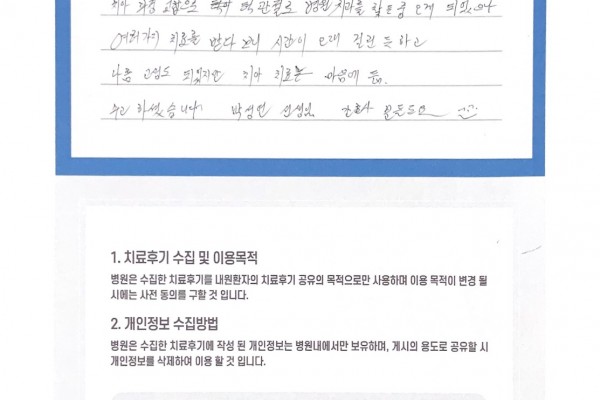 여러가지 치료를 받다 보니 시간이 오래 걸린 듯하고
나름 고생도 되었지만 치아 치료는 마음에 듬.
수고 하셨습니다. 박성연 선생님 간호사 분들도요
1. 치료후기 수집 및 이용목적
병원은 수집한 치료후기를 내원환자의 치료후기 공유의 목적으로만 사용하며 이용 목적이 변경 될
시에는 사전 동의를 구할 것 입니다.
2. 개인정보 수집방법
병원은 수집한 치료후기에 작성 된 개인정보는 병원내에서만 보유하며, 게시의 용도로 공유할 시
개인정보를 삭제하여 이용 할 것 입니다.